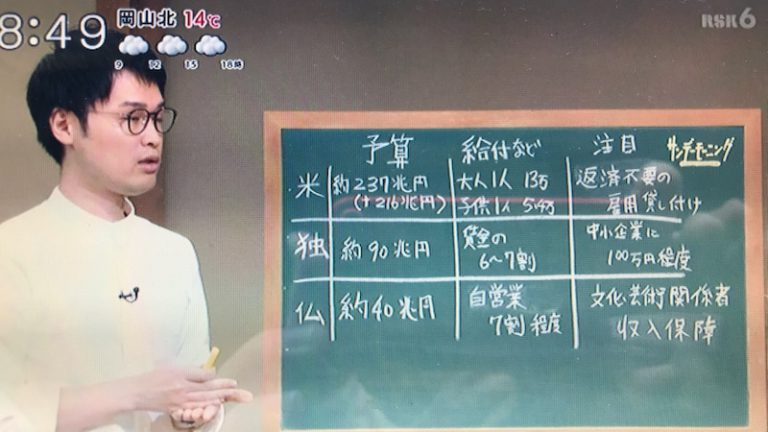 8:49
岡山北 14℃
9 12 15 18時
RSK6
予算 給付など 注目 サンデーモーニング
米 約237兆円 大人1人 13万 返済不要の
(+216兆円) 子供1人 5.4万 雇用貸し付け
独 約90兆円 賃金の 中小企業に
6〜7割 100万円程度
仏 約40兆円 自営業 文化・芸術関係者
7割程度 収入保障